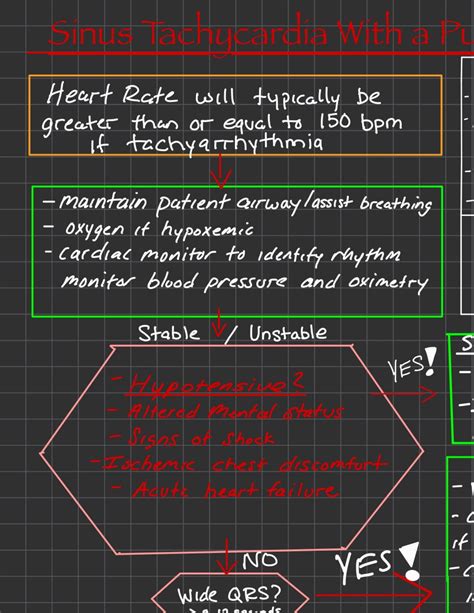 Sinus Tachycardia With a Pu
Heart Rate will typically be
greater than or equal to 150 bpm
if tachyarrhythmia
- maintain patient airway/assist breathing
- oxygen if hypoxemic
- cardiac monitor to identify rhythm
monitor blood pressure and oximetry
Stable / Unstable
- Hypotensive?
- Altered Mental Status
- Signs of Shock
- Ischemic chest discomfort
- Acute heart failure
YES!
S
NO
YES!
if
Wide QRS?